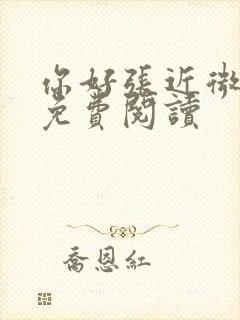 你好張近微
免費閱讀
喬恩紅